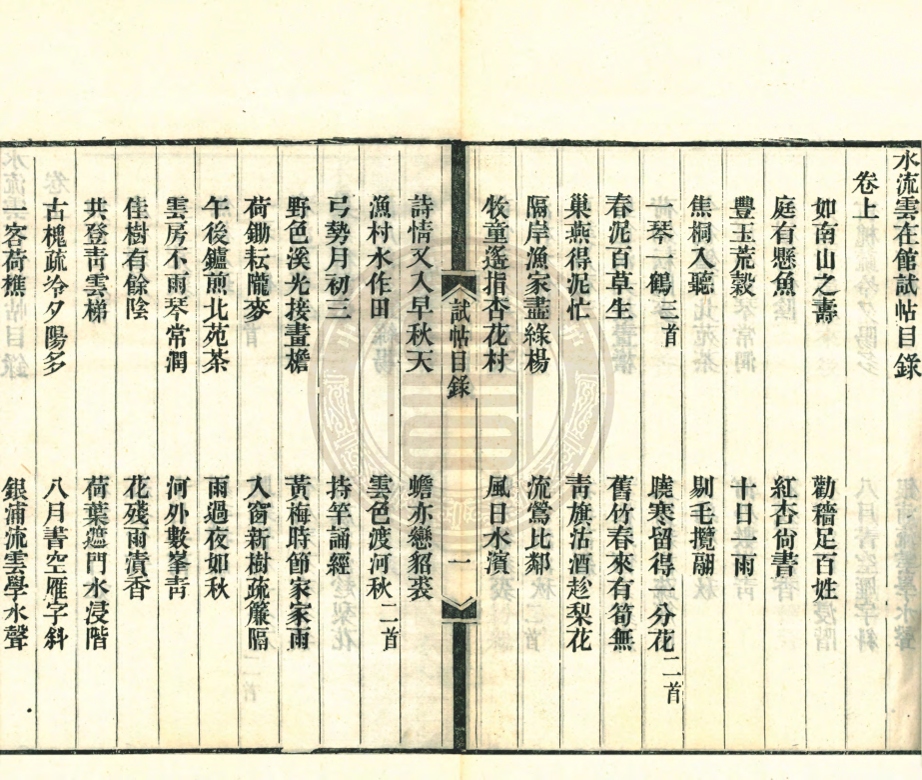 水流雲在館試帖目錄
卷上
如南山之壽 勸穡足百姓
庭有懸魚 紅杏尙書
豐玉荒穀 十日一雨
焦桐入聽 剔毛攬翮
一琴一鶴三首 曉寒留得一分花二首
春泥百草生 舊竹春來有筍無
巢燕得泥忙 靑旗沽酒趁梨花
隔岸漁家盡綠楊 流鶯比鄰
牧童遙指杏花村 風日水濱
試帖目錄 一
詩情又入早秋天 蟾亦戀貂裘
漁村水作田 雲色渡河秋二首
弓勢月初三 持竿誦經
野色溪光接畫檐 黃梅時節家家雨
荷鋤耘隴麥 入窗新樹疏簾隔
午後鑪煎北苑茶 雨過夜如秋
雲房不雨琴常潤 河外數峯靑
佳樹有餘陰 花殘雨漬香
共登靑雲梯 荷葉遮門水浸階
古槐疏冷夕陽多 八月書空雁字斜
一客荷樵 銀浦流雲學水聲